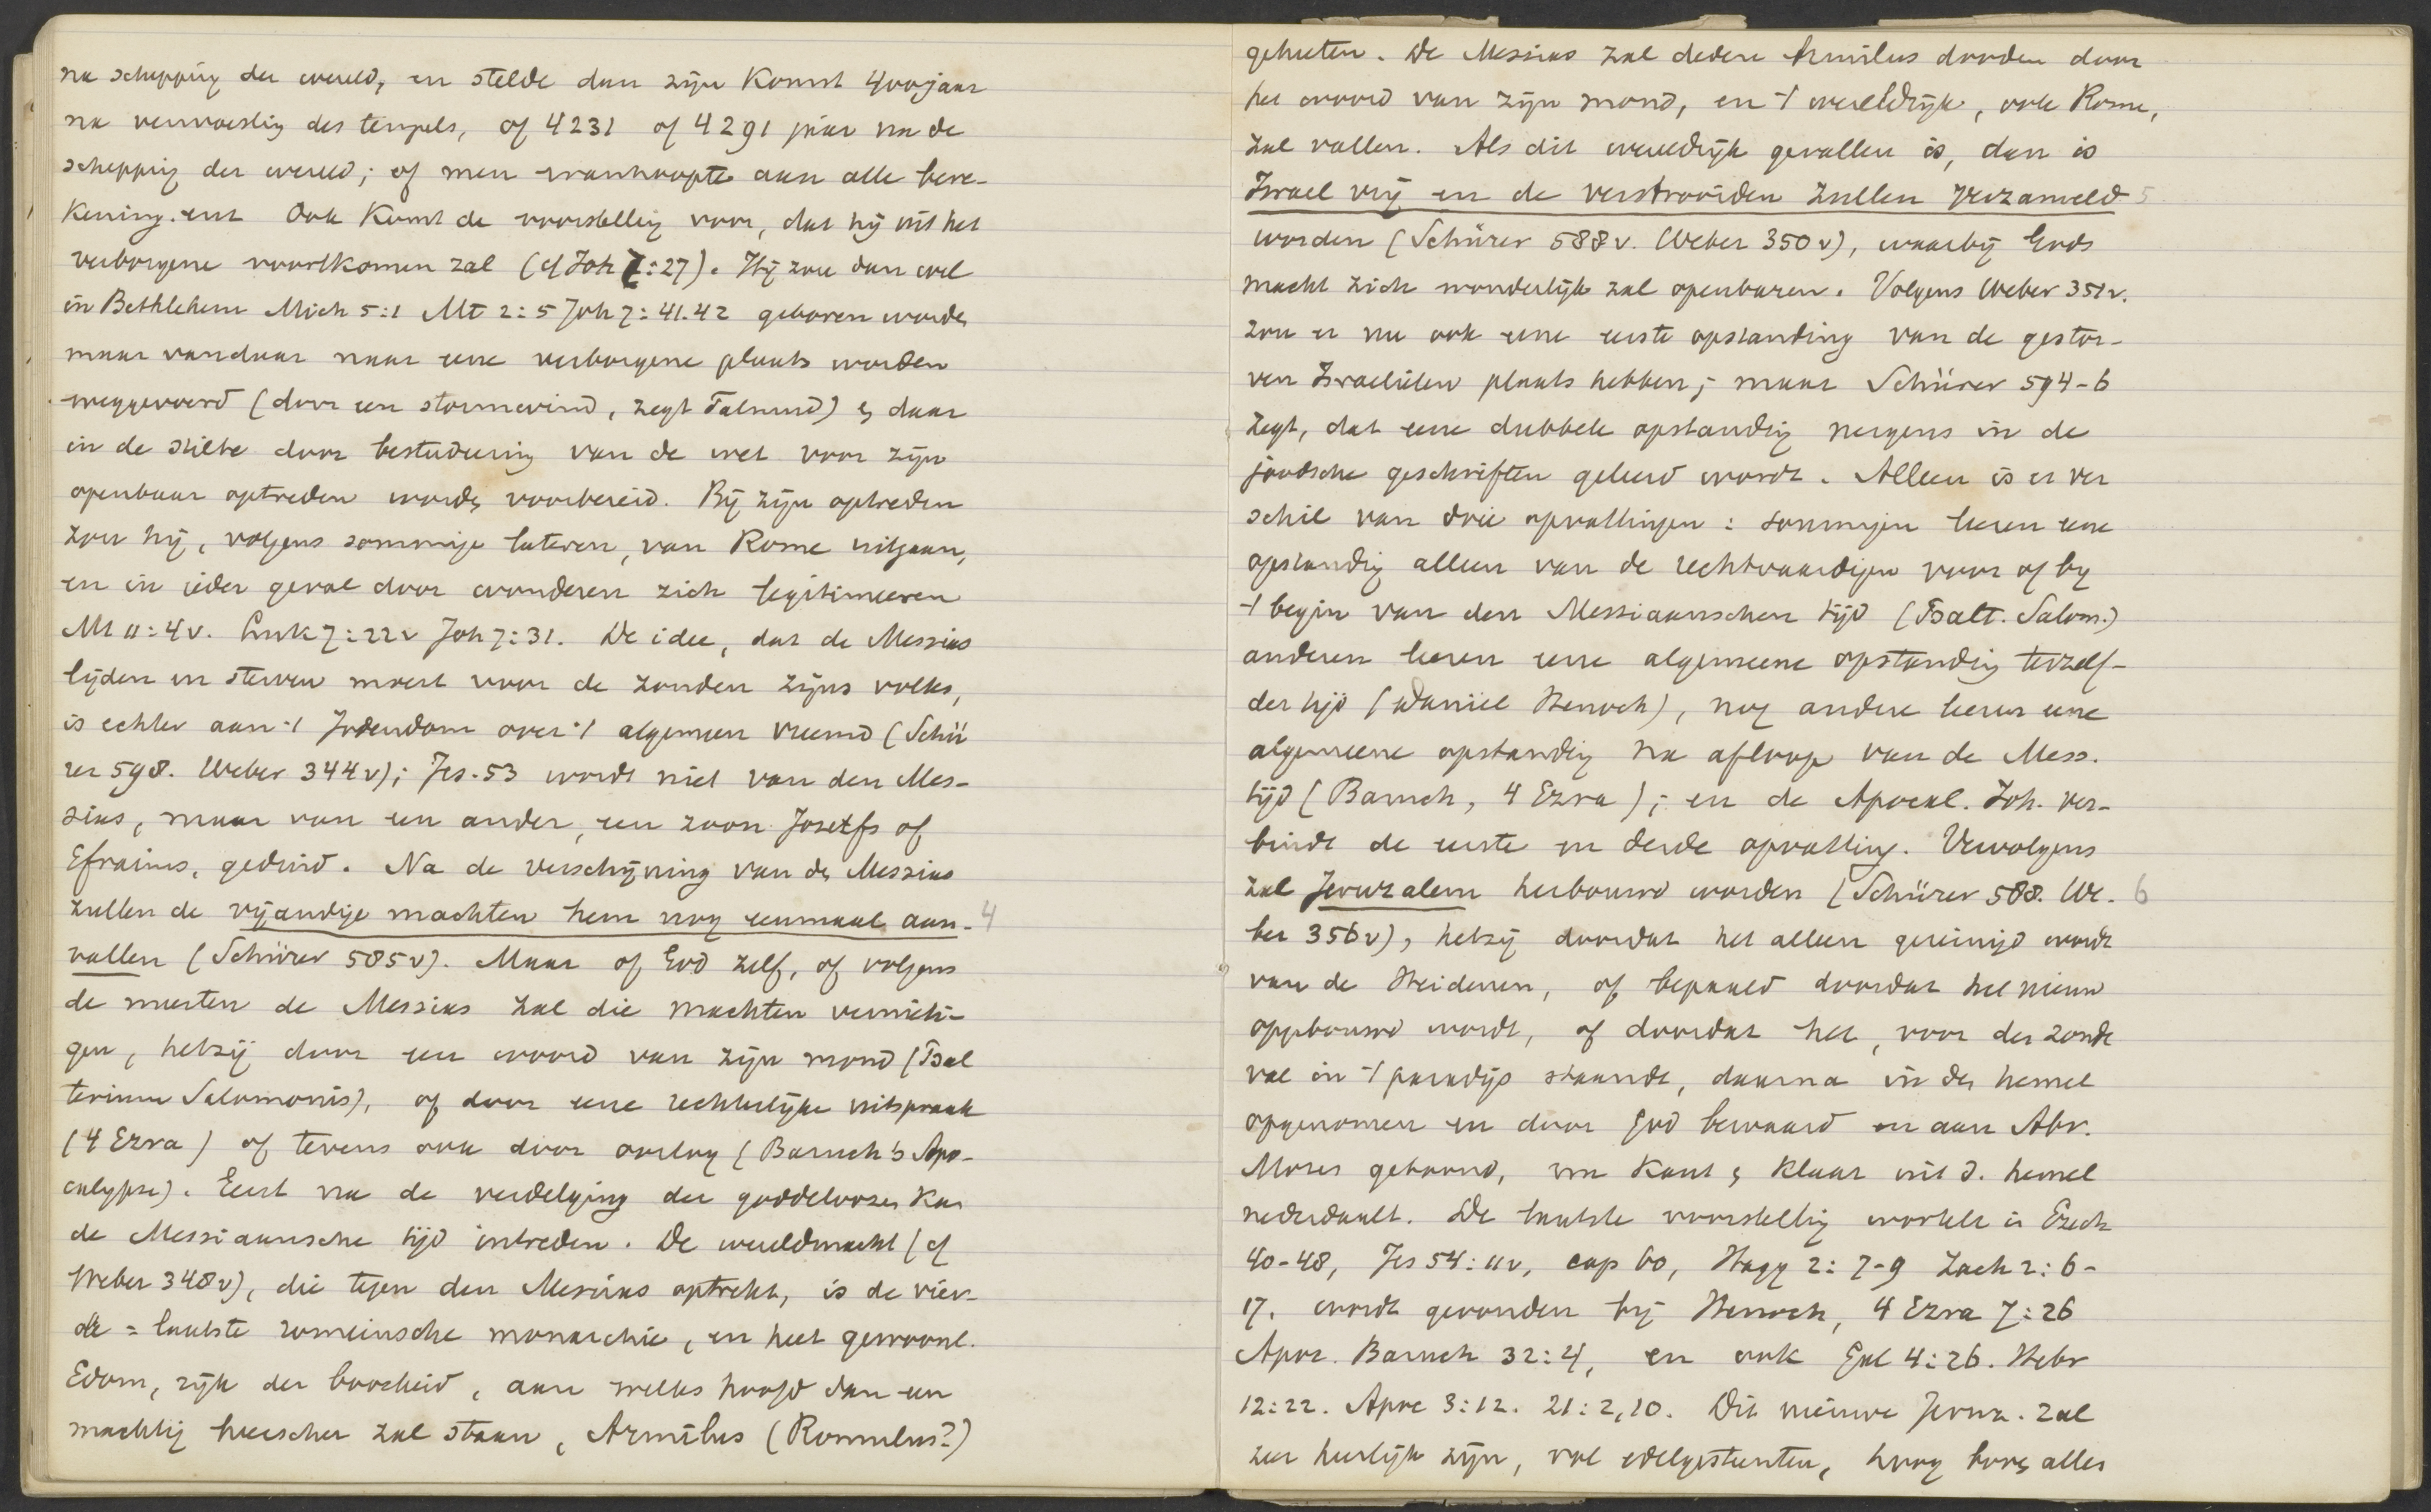 na schepping der wereld, en stelde dan zijn komst 400 jaar
na verwoesting des tempels, of 4231 of 4291 jaar na de
schepping der wereld; of men wanhoopte aan alle bere-
kening. Ook komt de voorstelling voor, dat hij uit het
verborgene voortkomen zal (cf Joh 7:27). Hij zou dan wel
in Bethlehem Mich 5:1 Mt 2:5 Joh 7:41.42 geboren worden
maar vandaar naar eene verborgene plaats worden
weggevoerd (door een stormwind, zegt Talmud) & daar
in de stilte door bestudeering van de wet voor zijn
openbaar optreden worden voorbereid. Bij zijn optreden
zou hij, volgens sommige lateren, van Rome uitgaan,
en in ieder geval door wonderen zich legitimeeren
Mt 11:4v. Luk 7:22v Joh 7:31. De idee, dat de Messias
lijden en sterven moest voor de zonden zijns volks,
is echter aan 't Jodendom over 't algemeen vreemd (Schü
rer 598. Weber 344v); Jes. 53 wordt niet van den Mes-
sias, maar van een ander, een zoon Josefs of
Efraims, geduid. Na de verschijning van den Messias
zullen de vijandige machten hem nog eenmaal aan- 4
vallen (Schürer 585v). Maar of God zelf, of volgens
de meesten de Messias zal die machten vernieti-
gen, hetzij door een woord van zijn mond (Psal
terium Salomonis), of door eene rechterlijke uitspraak
(4 Ezra) of tevens ook door oorlog (Baruch's Apo-
calypse). Eerst na de verdelging der goddeloozen kan
de Messiaansche tijd intreden. De wereldmacht (cf
Weber 348v), die tegen den Messias optrekt, is de vier-
de = laatste romeinsche monarchie, en heet gewoonl.
Edom, rijk der boosheid, aan welks hoofd dan een
machtig heerscher zal staan, Armilus (Romulus?)
geheeten. De Messias zal dezen Armilus dooden door
het woord van zijn mond, en 't wereldrijk, ook Rome,
zal vallen. Als dit wereldrijk gevallen is, dan is
Israel vrij en de verstrooiden zullen verzameld 5
worden (Schürer 588v. Weber 350v), waarbij Gods
macht zich wonderlijk zal openbaren. Volgens Weber 351v.
zou er nu ook eene eerste opstanding van de gestor-
ven Israelieten plaats hebben; maar Schürer 594-6
zegt, dat eene dubbele opstanding nergens in de
joodsche geschriften geleerd wordt. Alleen is er ver
schil van drie opvattingen: sommigen leeren eene
opstanding alleen van de rechtvaardigen voor of bij
't begin van den Messiaanschen tijd (Psalt. Salom.)
anderen leeren eene algemeene opstanding terzelf-
der tijd (Daniel Henoch), nog andere leeren eene
algemeene opstanding na afloop van de Mess.
tijd (Baruch, 4 Ezra); en de Apocal. Joh. ver-
bindt de eerste en derde opvatting. Vervolgens
zal Jeruzalem herbouwd worden (Schürer 588. We- 6
ber 356v), hetzij doordat het alleen gereinigd wordt
van de Heidenen, of bepaald doordat het nieuw
opgebouwd wordt, of doordat het, voor den zonde
val in 't paradijs staande, daarna in den hemel
opgenomen en door God bewaard en aan Abr.
Moses getoond, om kant & klaar uit d. hemel
nederdaalt. De laatste voorstelling wortelt in Ezech
40-48, Jes 54:11v, cap 60, Hagg 2:7-9 Zach 2:6-
17. wordt gevonden bij Henoch, 4 Ezra 7:26
Apoc. Baruch 32:4, en ook Gal 4:26. Hebr
12:22. Apoc 3:12. 21:2,10. Dit nieuwe Jeruz. zal
zeer heerlijk zijn, vol edelgesteenten, hoog boven alles